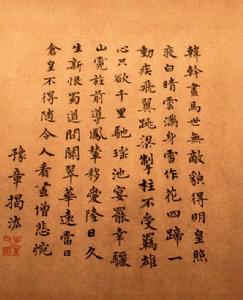 韓幹畫馬世無敵貌得明皇照
夜白晴雲滿身雪作花四蹄一
動疾飛翼跳梁掣柱不受羈雄
心只欲千里馳瑤池宴罷幸驪
山霓旌前導鳳輦移愛隆日久
生新恨蜀道間關翠華遠當日
倉皇不得隨令人看畫增悲惋
豫章揭汯